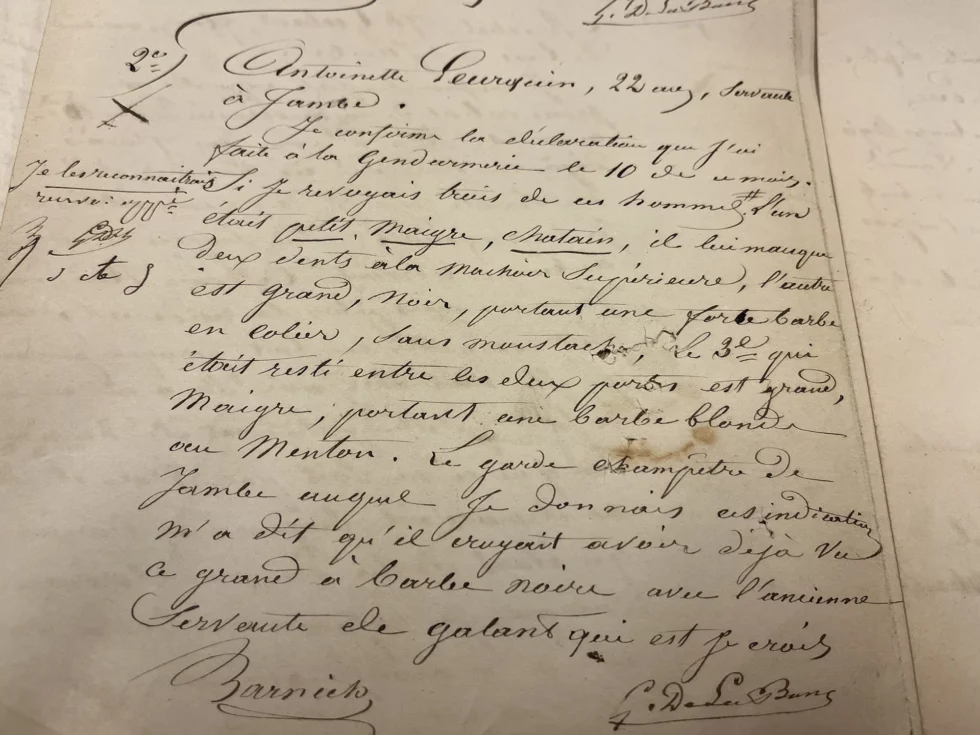 2e
Antoinette Lurquin, 22 ans, servante
à Jambe.
Je confirme la déclaration que j'ai
faite à la Gendarmerie le 10 de ce mois.
Si je revoyais trois de ces hommes # L'un
Je les reconnaitrais
renvoi
était petit, maigre, chatain, il lui manque
deux dents à la machoire supérieure, l'autre
est grand, noir, portant une forte barbe
en colier, sans moustache, Le 3e qui
était resté entre les deux portes est grand,
Maigre, portant une barbe blonde
au Menton. Le garde champêtre de
Jambe auquel Je donnais ces indications
m'a dit qu'il croyait avoir déjà vu
ce grand à barbe noire avec l'ancienne
Servante de galant qui est je crois
Barnich